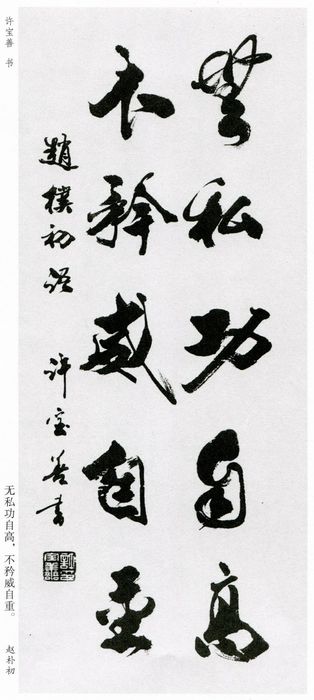 無私功自高
不矜威自重
趙樸初語 许宝善書
许宝善 书
无私功自高，不矜威自重。 赵朴初